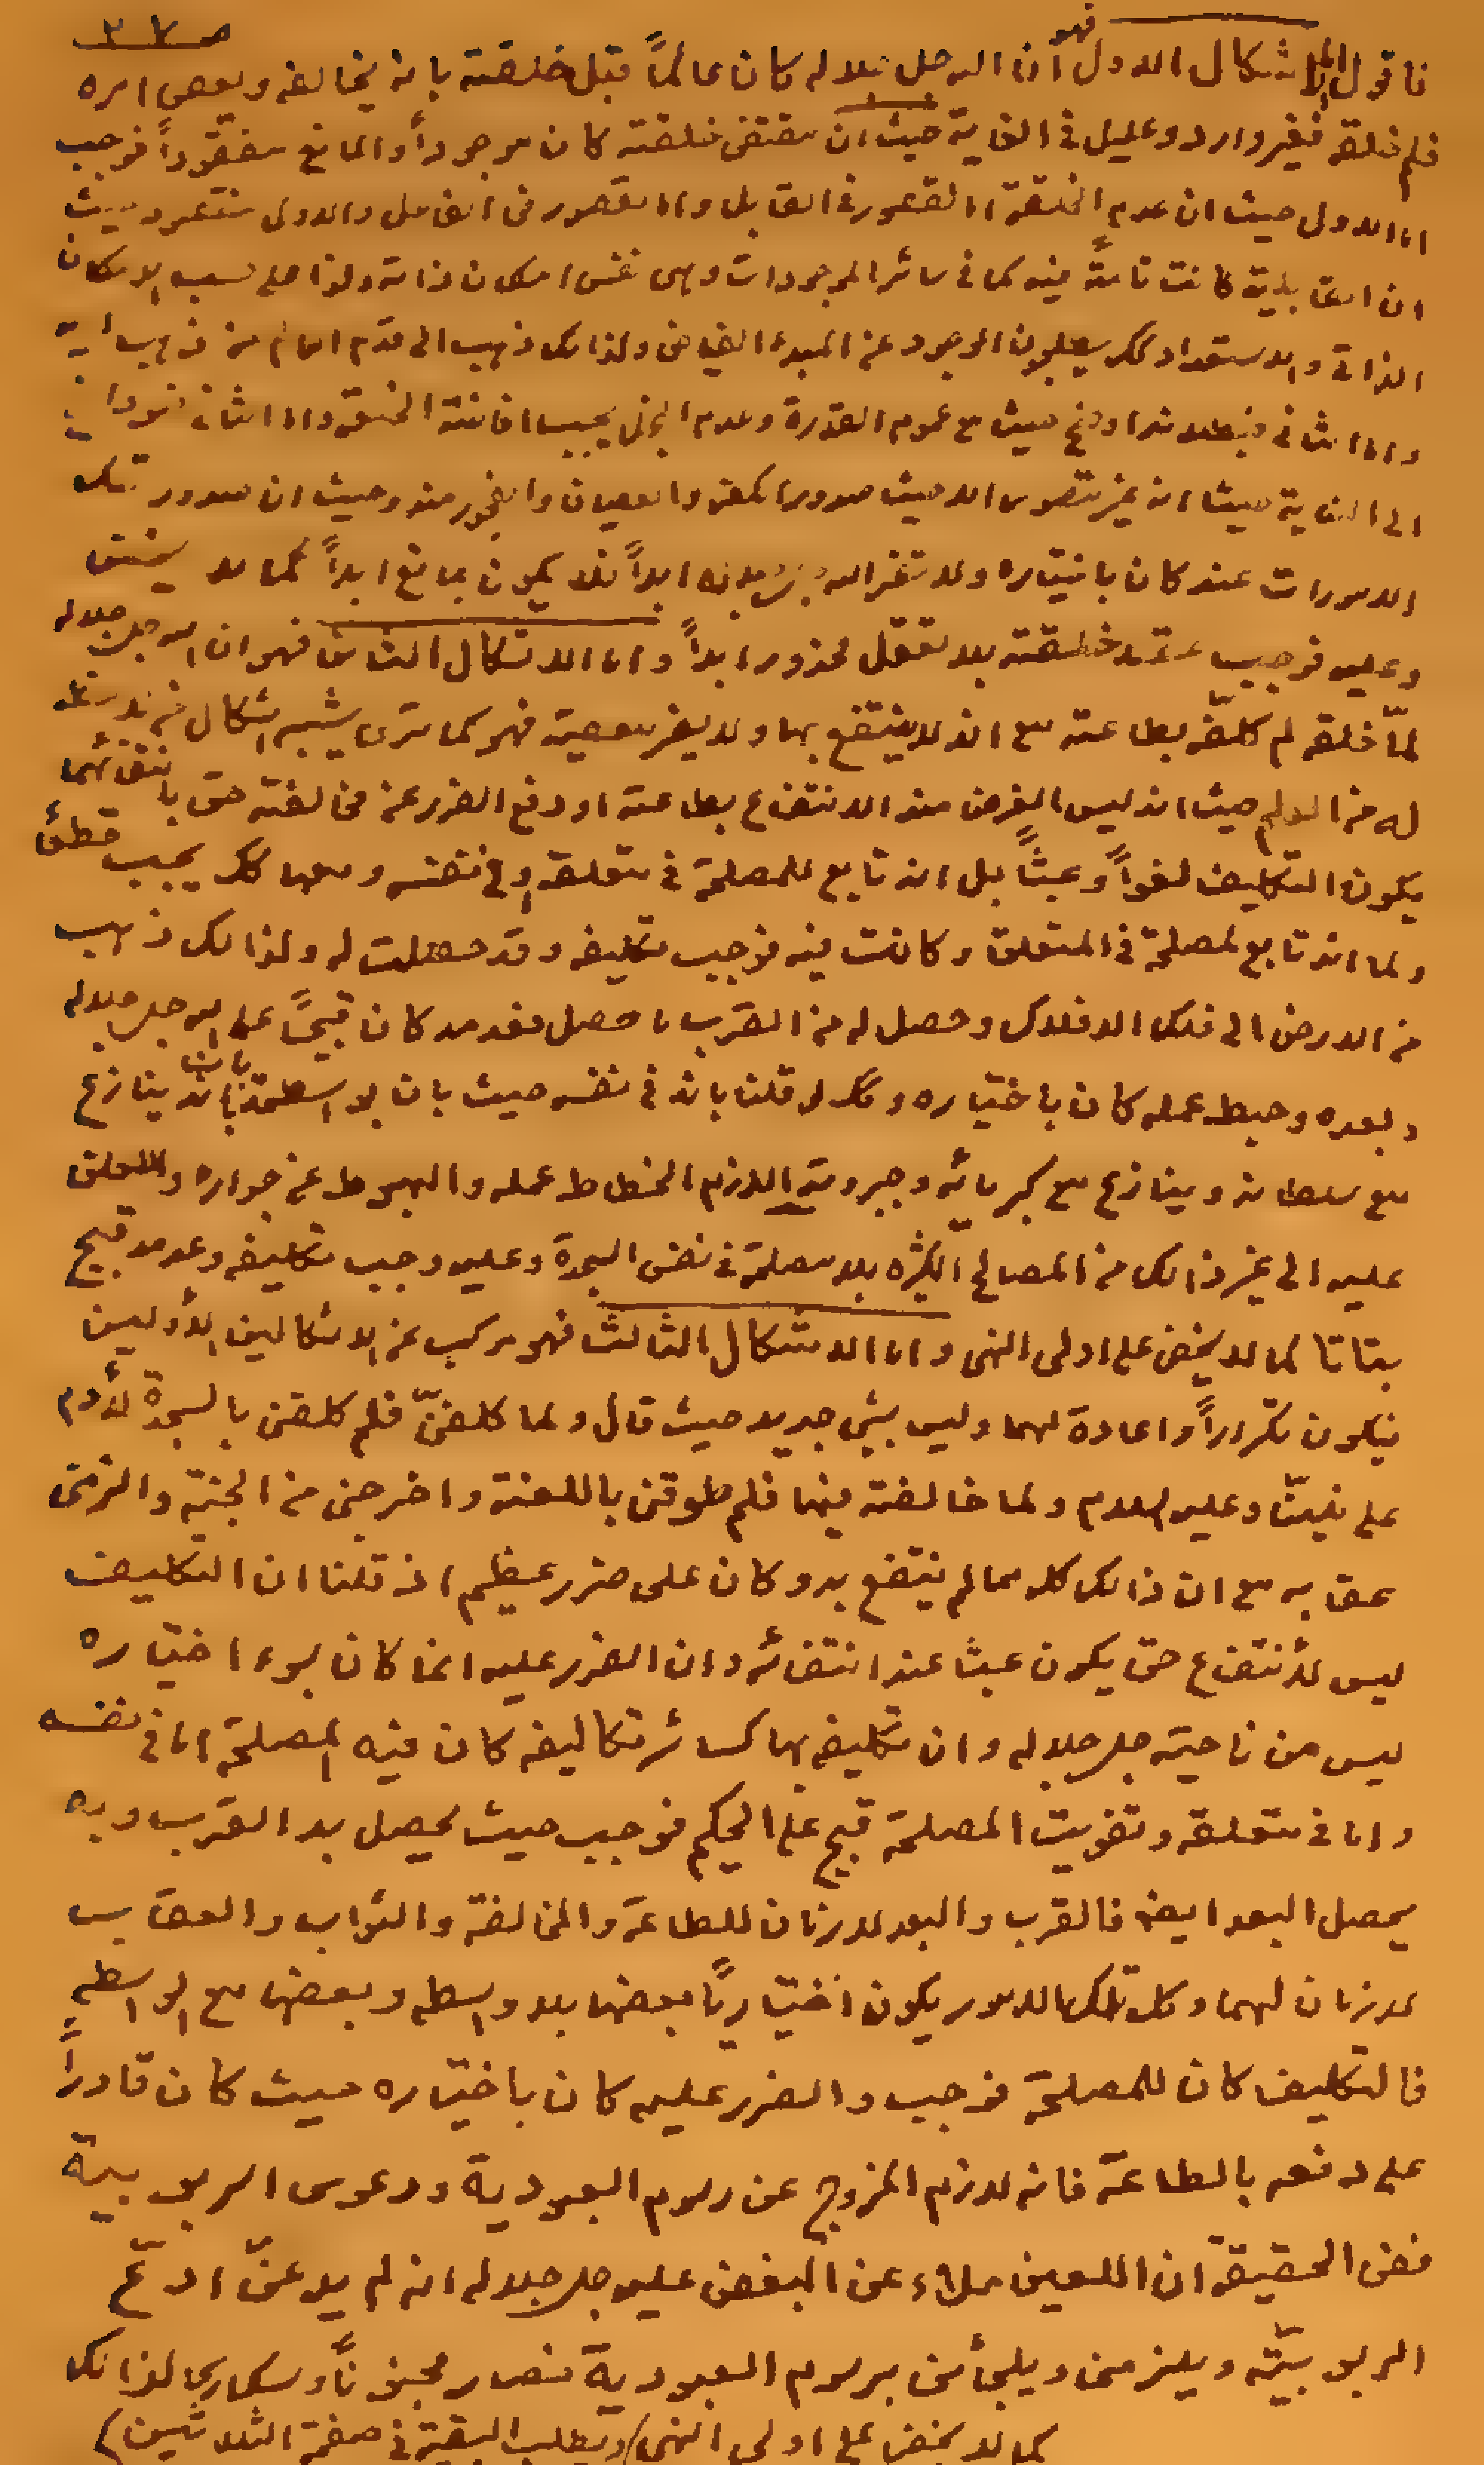 ص ٢٧
فاقول اما الاشكال الاول فهو ان الله جل جلاله كان عالماً قبل خلقته بانه يخالفه ويعصى امره
فلم خلقه فغير وارد وعليل فى الغاية حيث ان مقتضى خلقته كان موجوداً والمانع مفقوداً فوجب
اما الاولى حيث ان عدم الخلقة اما لقصور فى القابل واما لقصور فى الفاعل والاولى مفقود حيث
ان القابلية كانت تامةً فيه كما فى سائر الموجودات وهى نفس امكان ذاته ولذا صلح بسبب الامكان
الذاتى والاستعداد يطلبون الوجود عن المبدء الفياض ولذالك ذهب الى قدم العالم من ذهب اليه
واما الثانى فبطلانه اوضح حيث مع عموم القدرة وعدم البخل يجب افاضته الخلقة واما الثانى
الى الغاية حيث انه غير متصور الا حيث صدور الكفر والعصيان والفجور منه وحيث ان صدور تلك
الامورات عنه كان باختياره ولا تضر الله ابداً فلا يكون بمانع ابداً كما لا يخفى
وعليه فوجب عقلاً خلقته بلا تعقل محذور ابداً واما الاشكال الثانى فهو ان الله جل جلاله
لمّا خلقه لم كلّفه بطاعته مع انه لا ينتفع بها ولا يضر معصية فهو كما ترى يشبه اشكال من لا حظّ
له من العلم حيث انه ليس الغرض منه الانتفاع بطاعته او دفع الضرر عن مخالفته حتى بانتفائهما
يكون التكليف لغواً وعبثاً بل انه تابع للمصلحة فى متعلقه او فى نفسه ومعها يجب قطعاً
ولما انه تابع لمصلحة فى المتعلق وكانت فيه فوجب تكليفه وقد حصلت له ولذالك ذهب
من الارض الى فلك الافلاك وحصل له من القرب ما حصل فعدمه كان قبيحاً على الله جل جلاله
وبعده وحبط عمله كان باختياره ولو قلنا بانه فى نفسه حيث بان بالواسطة بانه ينازع
مع سلطانه وينازع مع كبريائه وجبروته اللازم انحطاط عمله والهبوط عن جواره
عليه الى غير ذالك من المصالح الكثيره بلا مصلحة فى نفس السجدة وعليه وجب تكليفه وعدمه قبيح
بتاتا كما لا يخفى على اولى النهى واما الاشكال الثالث فهو مركب عن الاشكالين الأولين
فيكون تكرّراً واعادة لهما وليس بشئ جديد حيث قال ولما كلفنّى فلم كلفنى بالسجدة لأدم
على نبيّنا وعليه السلام ولما خالفته فيها فلم طوقنى باللعنة واخرجنى من الجنة والزمنى
عقابه مع ان ذالك كله مما لم ينتفع به وكان على ضرر عظيم اذ قلنا ان التكليف
ليس لأنتفاع حتى يكون عبثا عند انتفائه وان الضرر عليه انما كان بسوء اختياره
ليس من ناحيته جل جلاله وان تكليفه بها كسائر تكاليفه كان فيه المصلحة اما فى نفسه
واما فى متعلقه وتفويت المصلحة قبيح على الحكيم فوجب حيث يحصل به القرب وبه
يحصل البعد ايضا فالقرب والبعد لازمان للطاعة والمخالفة والثواب والعقاب
لازمان لهما وكل تلك الامور يكون اختياريّاً بعضها بلا واسطه وبعضها مع الواسطه
فالتكليف كان للمصلحة فوجب والضرر عليه كان باختياره حيث كان قادراً
على دفعه بالطاعة فانه لازم الخروج عن رسوم العبودية ودعوى الربوبية
ففى الحقيقة ان اللعين ملاء عن البغض عليه جل جلاله انه لم يدعنّى ادعّى
الربوبيّة ويلزمنى ويلجأنى برسوم العبودية فصار مجنوناً وسكارى لذالك
كما لا يخفى على اولى النهى (ويطلب البقية فى صفحة الثلاثين)